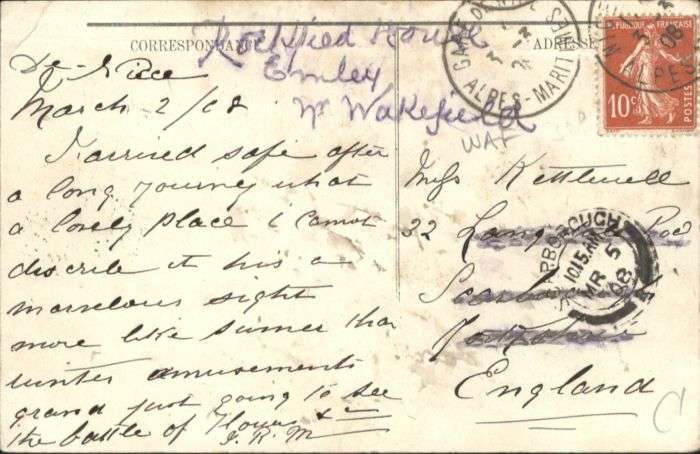 CORRESPONDANCE
ADRESSE
Rockfied House
Emley
Nr Wakefield
WAK
De-Nice
March 2/08
I arrived safe after
a long journey what
a lovely place I cannot
discribe it his a
marvelous sight
more like sumer than
winter amusements
grand just going to see
the battle of flowers &c
J. R. M
Miss Kettlewell
22
Scarborough
Yorkshire
England
GARE DE NICE
ALPES-MARITIMES
POSTES
10c
SCARBOROUGH
10.15 AM
MR 5
08
C